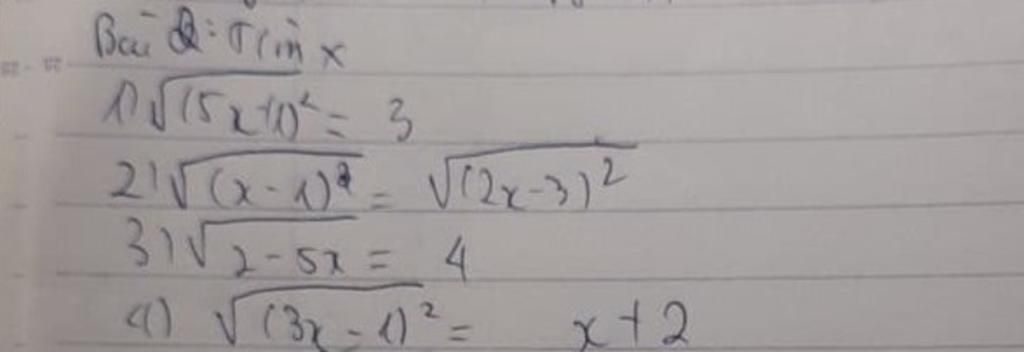 Bài 2: Tìm x
1) √(5x+1)² = 3
2) √(x-1)² = √(2x-3)²
3) √2-5x = 4
4) √(3x-1)² = x+2